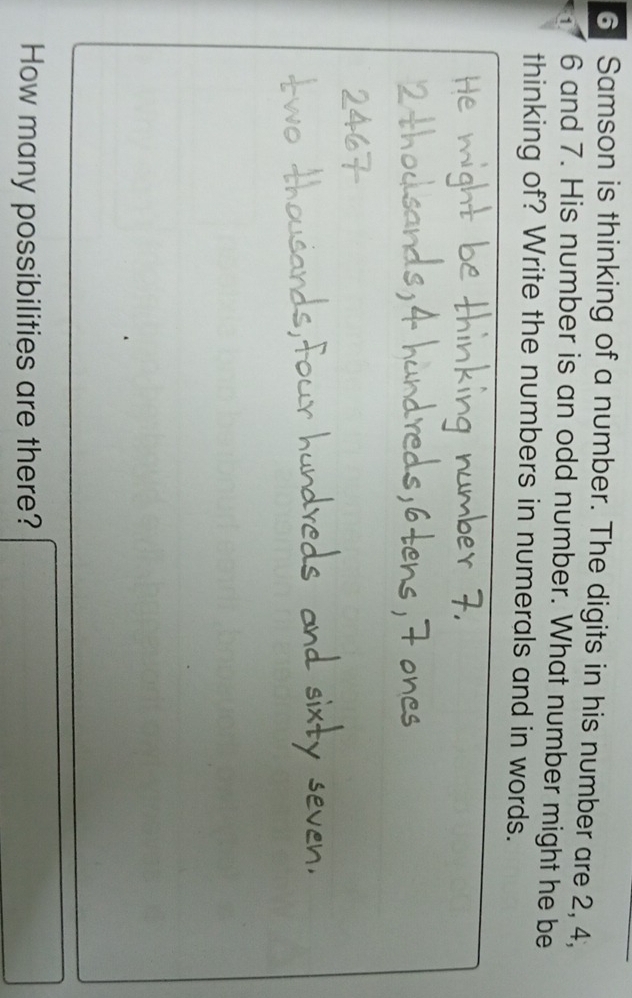 6 Samson is thinking of a number. The digits in his number are 2, 4,
1 6 and 7. His number is an odd number. What number might he be
thinking of? Write the numbers in numerals and in words.
He might be thinking number 7.
2 thousands, 4 hundreds, 6 tens, 7 ones
2467
two thousands, four hundreds and sixty seven.
How many possibilities are there?